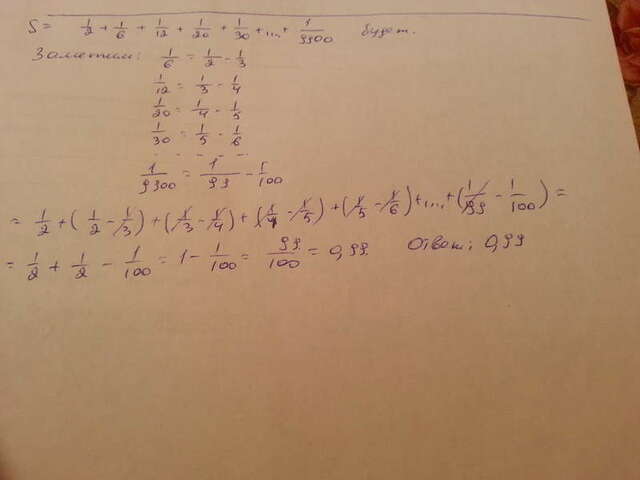 S = 1/2 + 1/6 + 1/12 + 1/20 + 1/30 + ... + 1/9900 будет.
Заметим: 1/6 = 1/2 - 1/3
1/12 = 1/3 - 1/4
1/20 = 1/4 - 1/5
1/30 = 1/5 - 1/6
- - - - - -
1/9900 = 1/99 - 1/100
= 1/2 + (1/2 - 1/3) + (1/3 - 1/4) + (1/4 - 1/5) + (1/5 - 1/6) + ... + (1/99 - 1/100) =
= 1/2 + 1/2 - 1/100 = 1 - 1/100 = 99/100 = 0,99. Ответ: 0,99